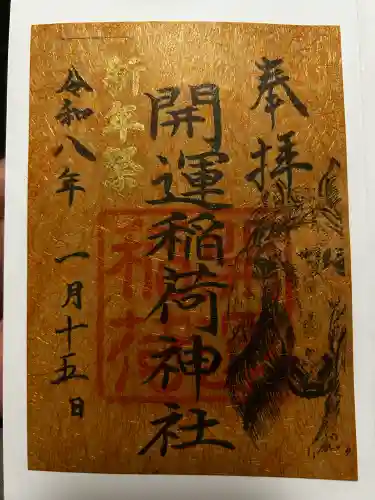 奉拝
開運稲荷神社
新年祭
令和八年 一月十五日